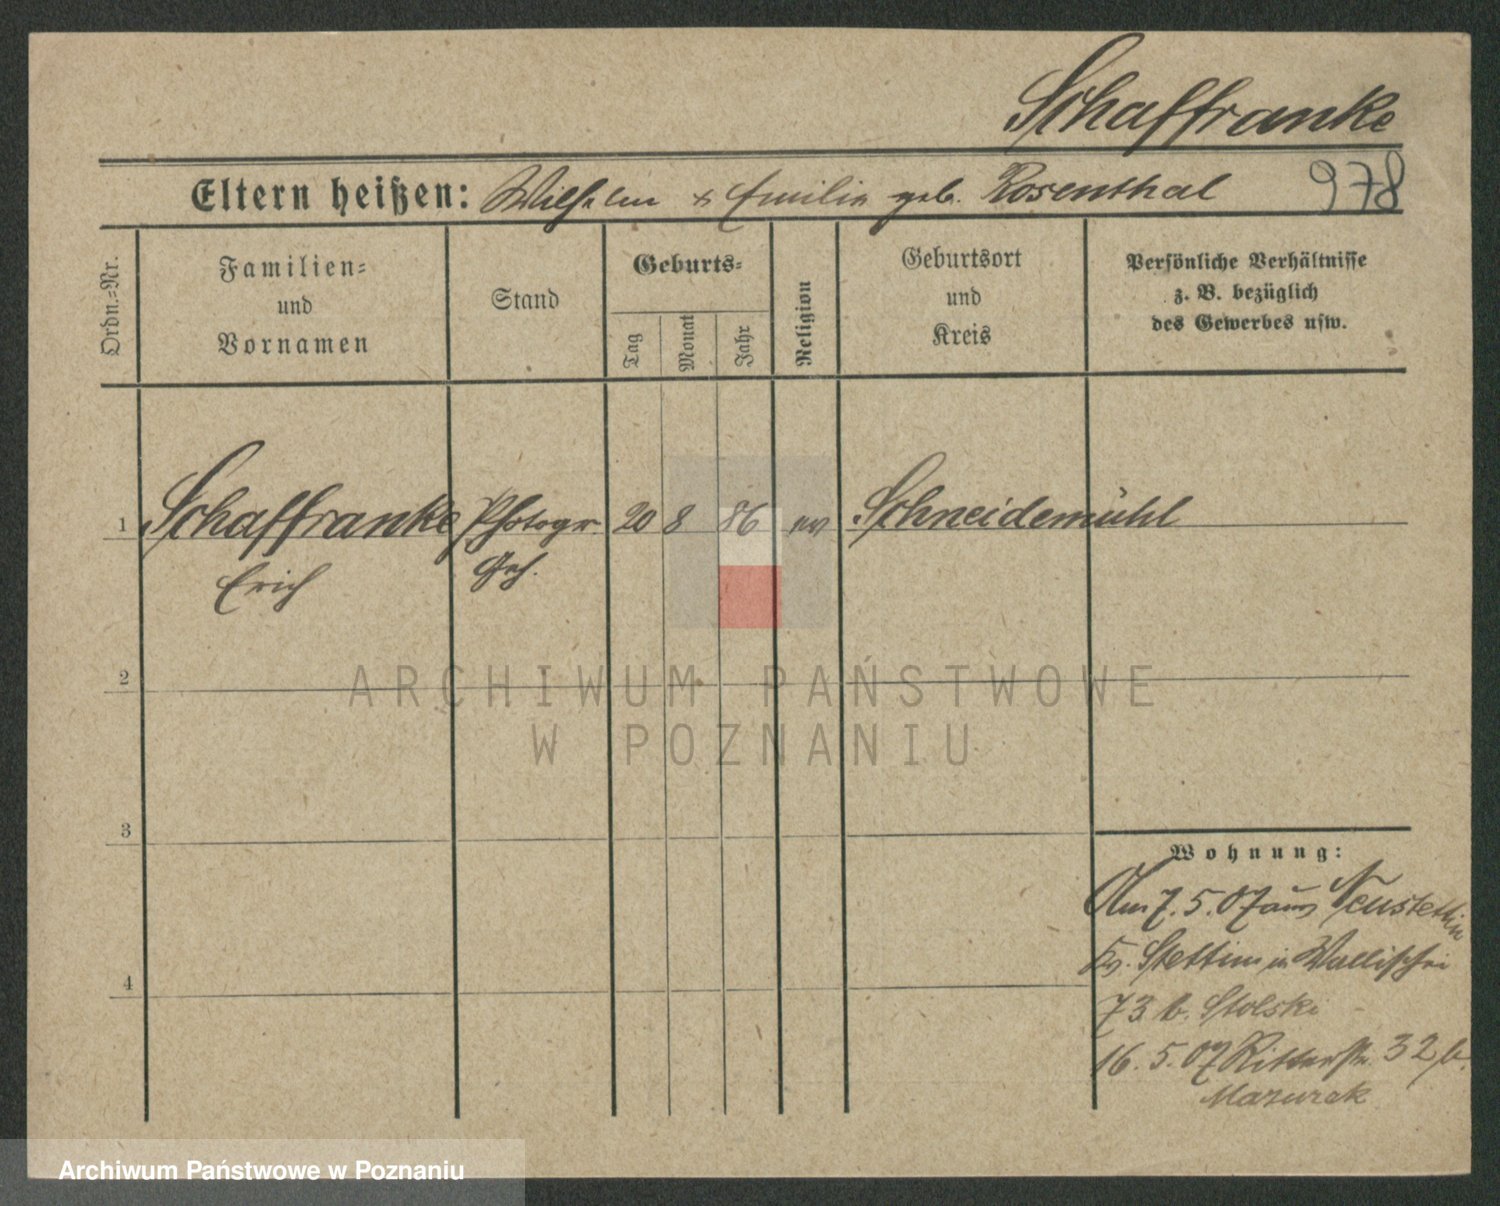 Schaffranke
Eltern heißen: Wilhelm & Emilie geb. Rosenthal 978
Ordn.=Nr.
Familien=
und
Vornamen
Stand
Geburts=
Tag
Monat
Jahr
Religion
Geburtsort
und
Kreis
Persönliche Verhältnisse
z. B. bezüglich
des Gewerbes usw.
1 Schaffranke Photogr. 20 8 86 ev Schneidemühl
Erich Geh.
2
3
4
Wohnung:
Am 7. 5. 07 aus Neustettin
Kr. Stettin in Wallischei
73 b. Stolski
16. 5. 07 Ritterstr. 32 b.
Mazurek
ARCHIWUM PAŃSTWOWE
W POZNANIU
Archiwum Państwowe w Poznaniu